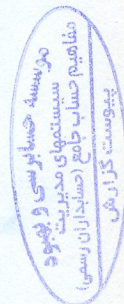 موسسه حسابرسی و بهبود
سیستمهای مدیریت
مفاهیم حساب جامع (حسابداران رسمی)
پیوست گزارش